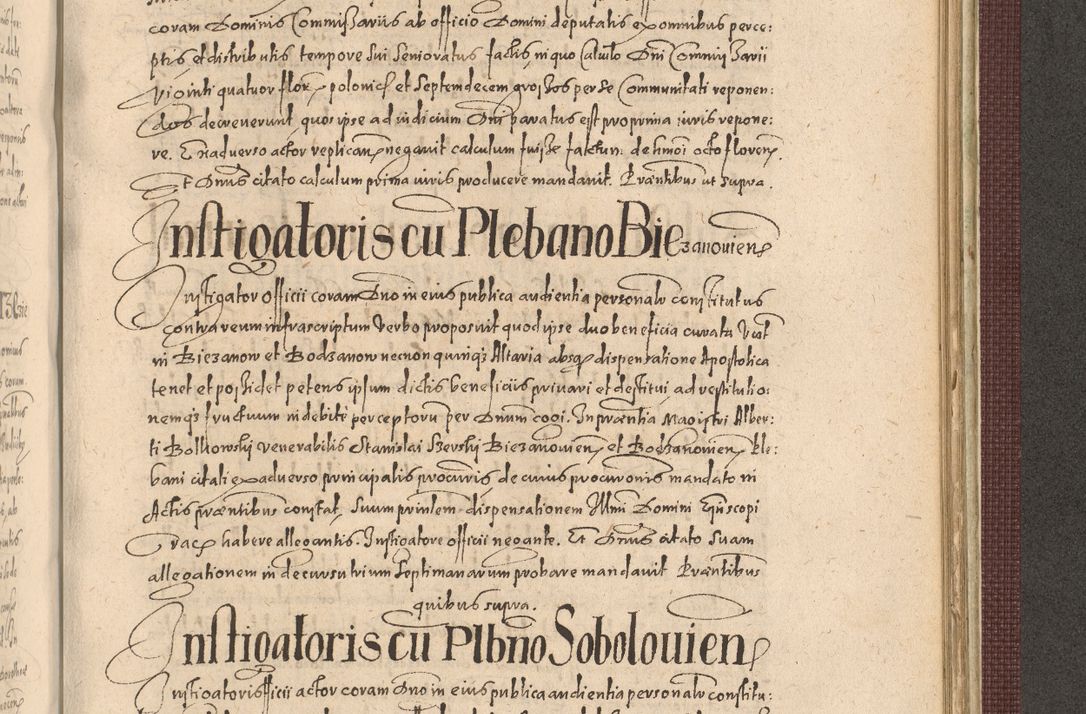 coram Dominis Commissariis ab officio Domini deputatis ex omnibus perce:
ptis et distributis tempore sui senioratus factis, in quo calculo Dni Commissarii
viginti quatuor floren polonicos et septemdecem grossos per se Communitati reponen:
dos decreverunt, quos ipse ad iudicium Dni paratus est pro prima iuris repone:
re. Ex adverso actor replicans negavit calculum fuisse factum de himoi octo floren
Et Dnus citato calculum prima iuris producere mandavit. Praentibus ut supra.
Instigatoris cu Plebano Biezanovien
Instigator officii coram Dno in eius publica audientia personalr constitutus
contra reum infrascriptum verbo proposuit quod ipse duo beneficia curata Vcɫt
in Biezanow et Bodzanow necnon quinqz Altaria absqz dispensatione Apostolica
tenet et possidet petens ipsum dictis beneficiis privari et destitui ad restitutio:
nemqz fructuum indebite perceptoru per Dnum cogi. In praentia Magistri Alber:
ti Bolkowskj venerabilis Stanislai Szerskj Biezanovien et Bodzanovien Ple:
bani citati ex adverso principalis procuris de cuius procuronis mandato in
Actis praentibus constat, suum prinlem dispensationem Illmi Domini Episcopi
Crac habere allegantis. Instigatore officii negante. Et Dnus citato suam
allegationem in decursu trium septimanarum probare mandavit Praentibus
quibus supra.
Instigatoris cu Plbno Sobolovien
Instigator officii actor coram Dno in eius publica audientia personalr constitu: